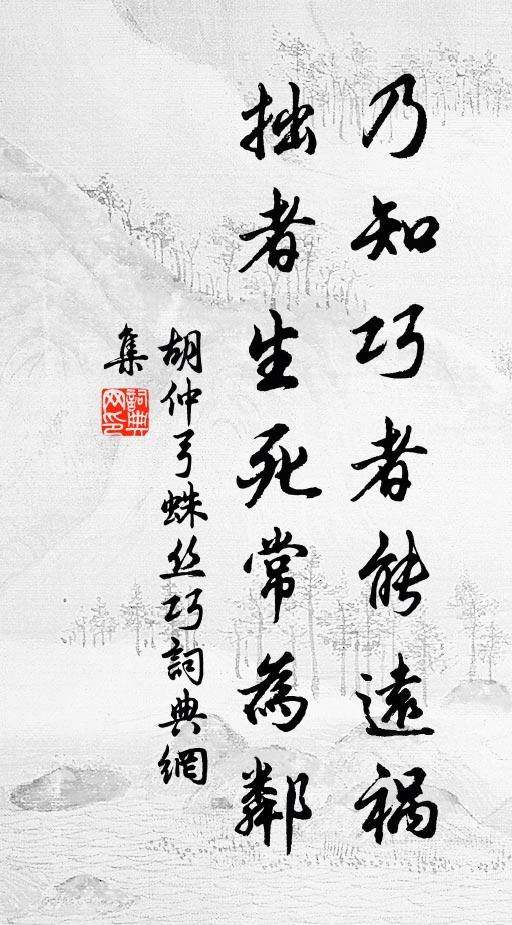 乃知巧者能遠禍
拙者生死常為鄰
胡仲弓蛛丝巧詞典網
集
詞典
网印